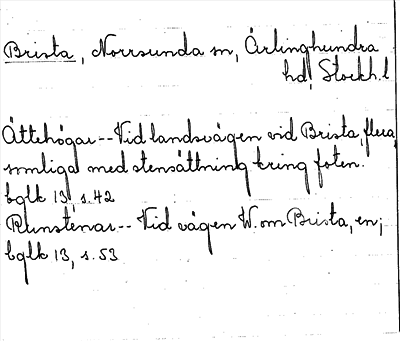 Brista, Norrsunda sn, Ärlinghundra
hd, Stockh.l
Ättehögar -- Vid landsvägen vid Brista, flera,
somliga med stensättning kring foten.
bglk 13, s. 42
Runstenar -- Vid vägen W. om Brista, en;
bglk 13, s. 53